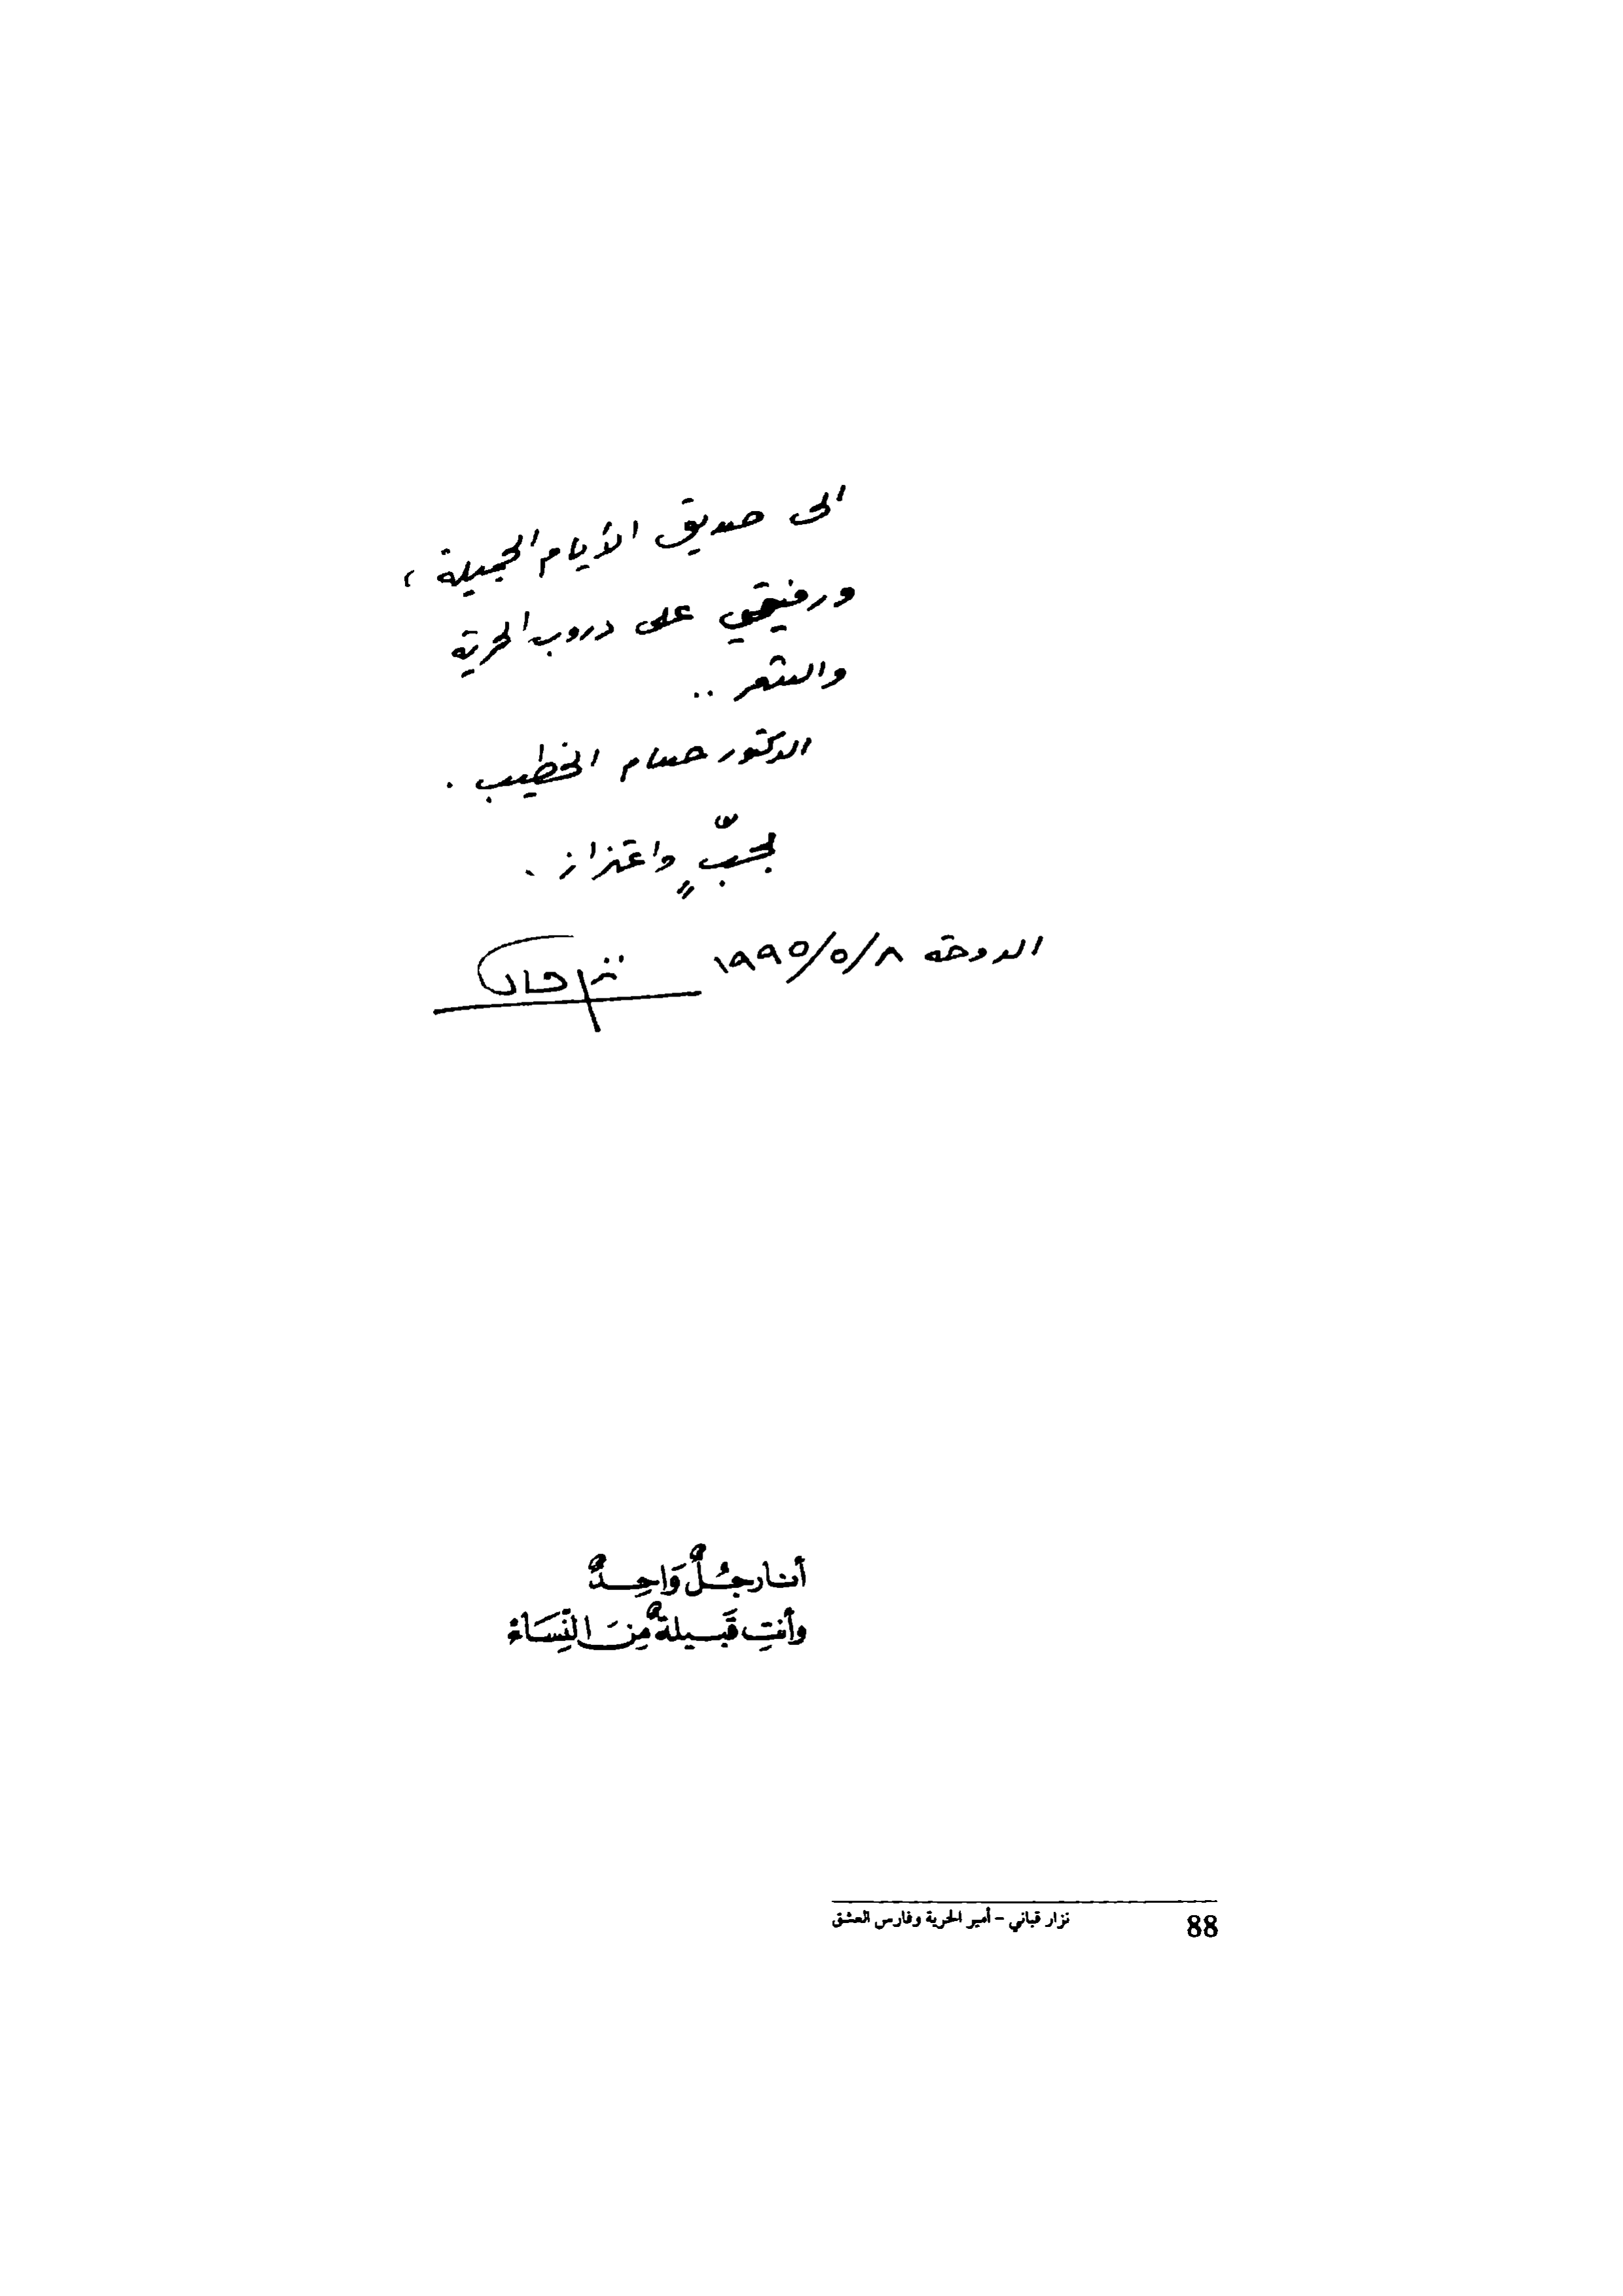 الى صديق الأيام الجميلة ،
ورفيقي على دروب الحرية
والشعر ..
الدكتور حسام الخطيب .
بحبٍّ واعتزاز .
الدوحة ١٩٩٥/٥/٨
أنا رجُلٌ وَاحِدٌ
وأنتِ قَبيلةٌ مِنَ النِّسَاءْ
88 نزار قباني - أمير الحرية وفارس العشق